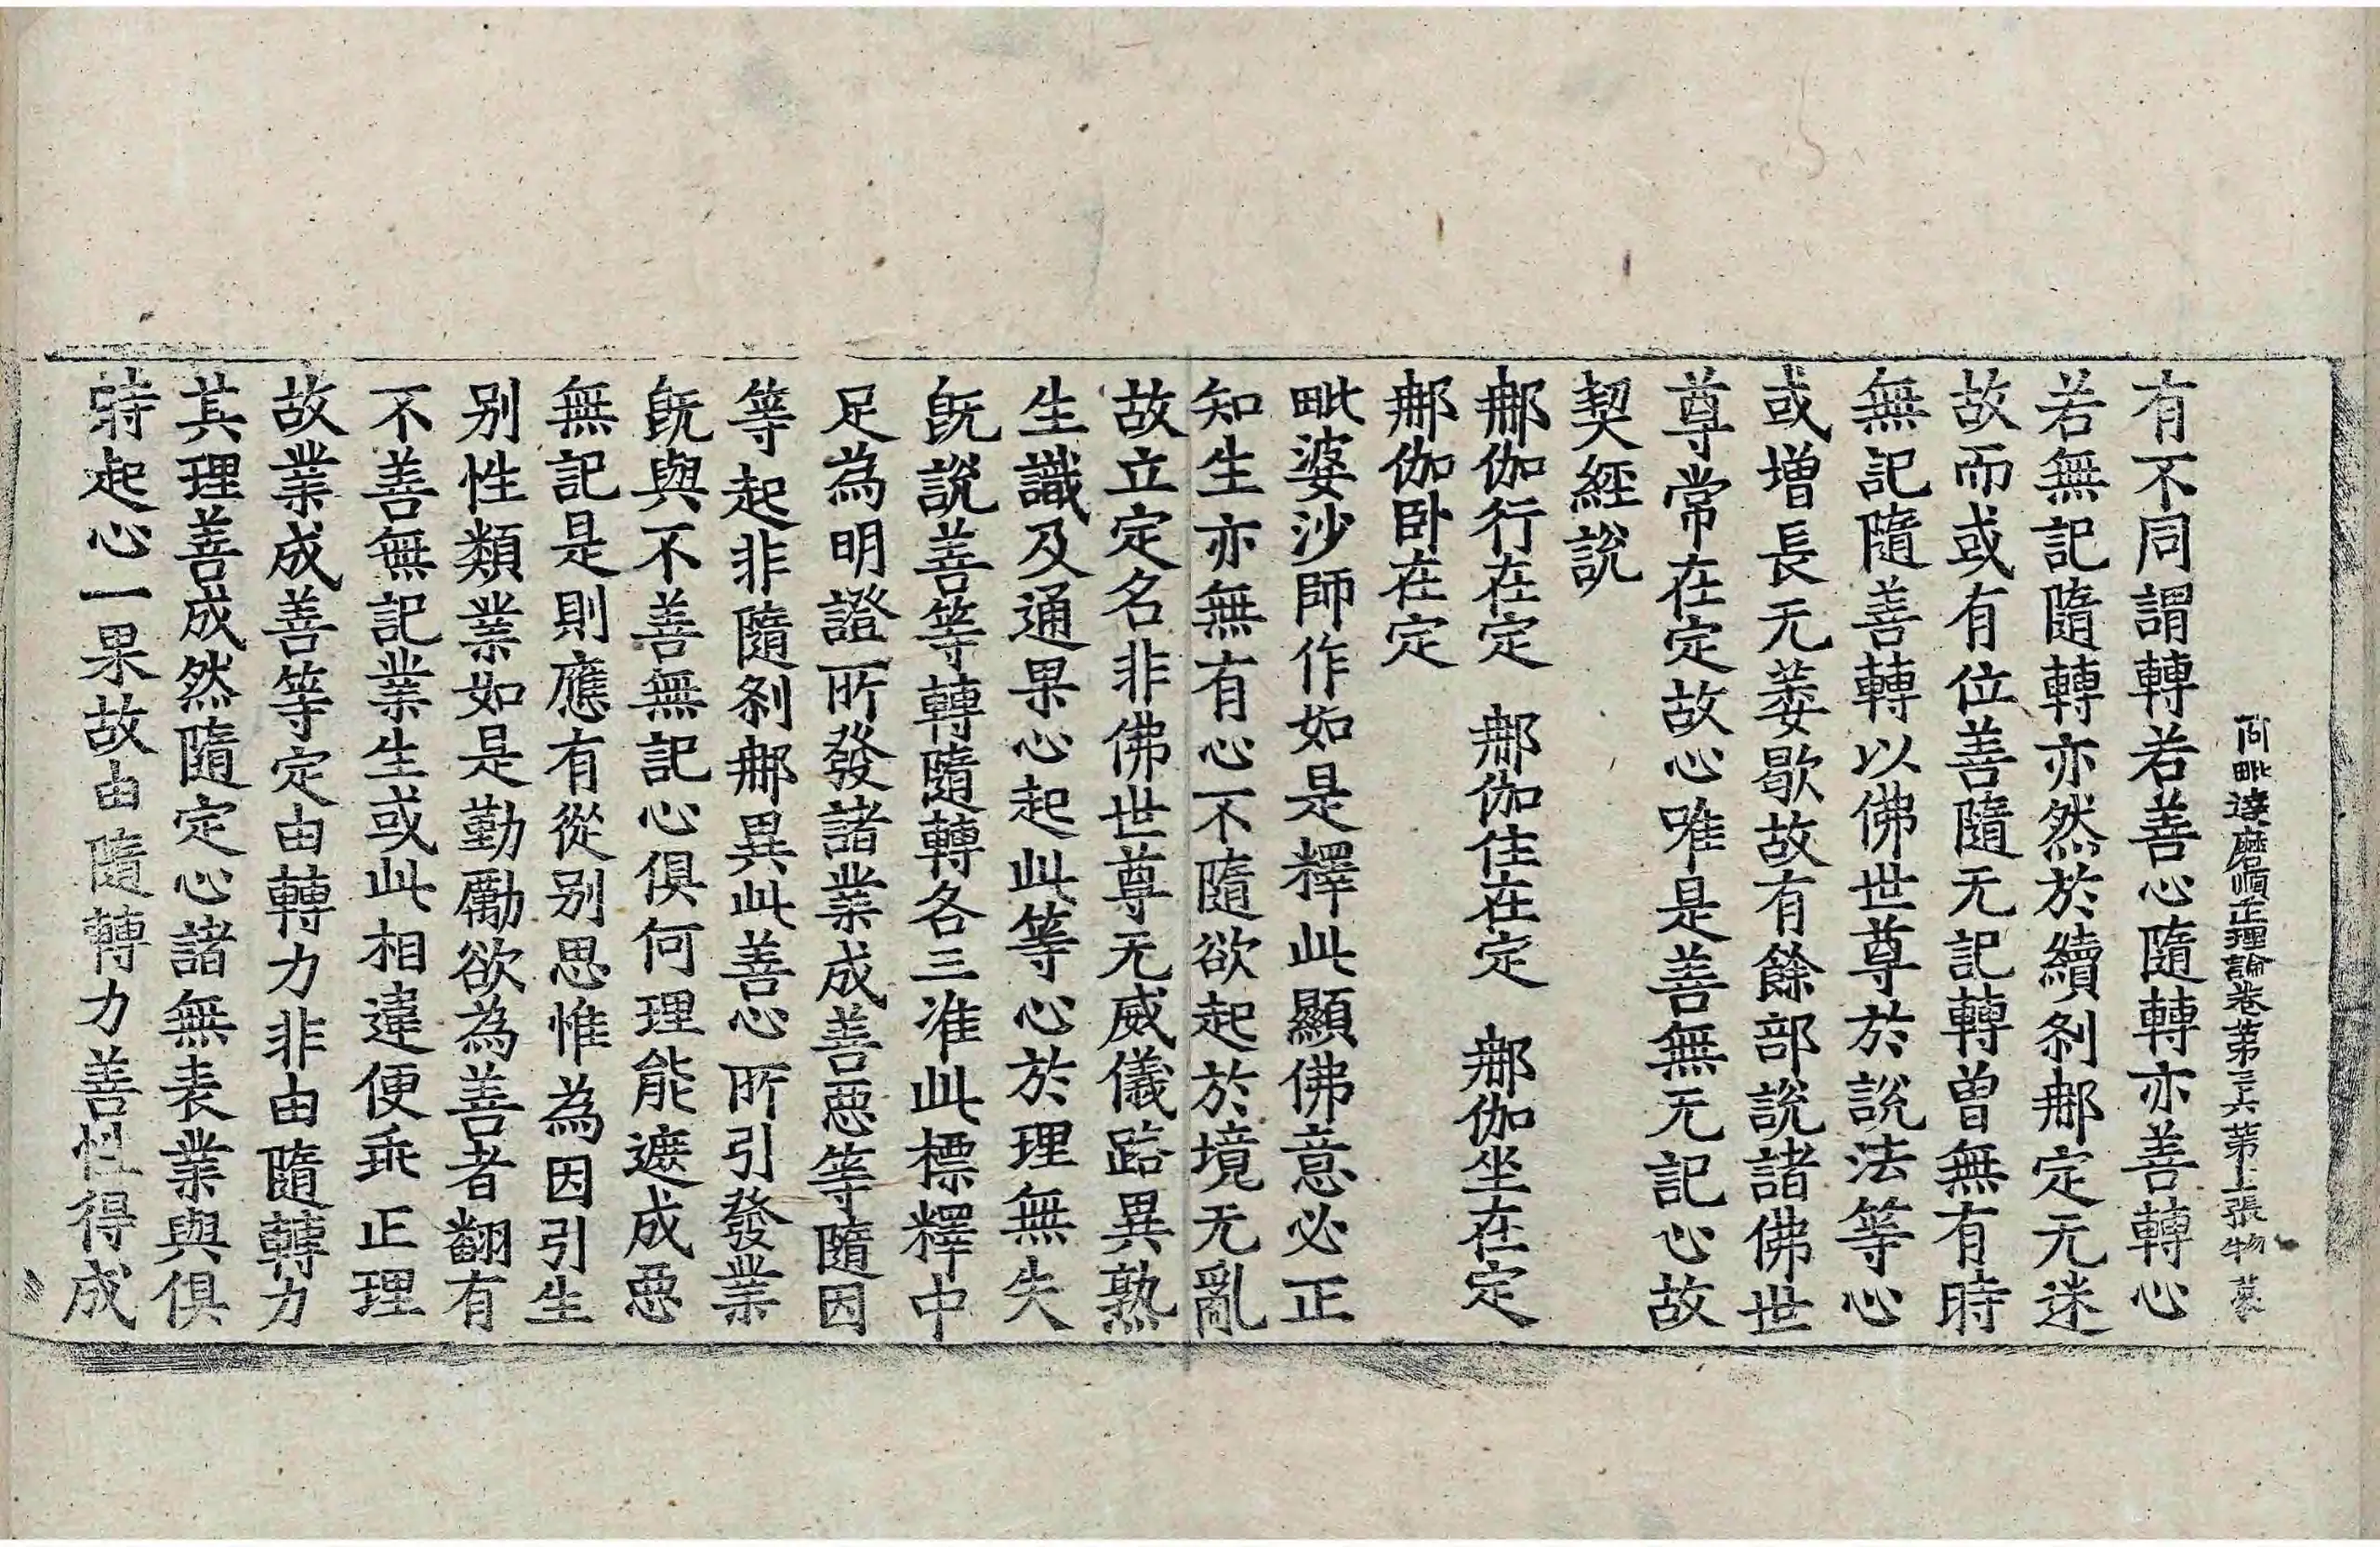 阿毗達磨順正理論卷第三六 第十一張 物 䝉
有不同謂轉若善心隨轉亦善轉心
若無記隨轉亦然於續刹郍定无迷
故而或有位善隨无記轉曾無有時
無記隨善轉以佛世尊於說法等心
或增長无萎歇故有餘部說諸佛世
尊常在定故心唯是善無无記心故
契經說
郍伽行在定 郍伽住在定 郍伽坐在定
郍伽卧在定
毗婆沙師作如是釋此顯佛意必正
知生亦無有心不隨欲起於境无亂
故立定名非佛世尊无威儀路異熟
生識及通果心起此等心於理無失
旣說善等轉隨轉各三准此標釋中
足為明證所發諸業成善惡等隨因
等起非隨刹郍異此善心所引發業
旣與不善無記心俱何理能遮成惡
無記是則應有從别思惟為因引生
别性類業如是勤勵欲為善者翻有
不善無記業生或此相違便乖正理
故業成善等定由轉力非由隨轉力
其理善成然隨定心諸無表業與俱
時起心一果故由隨轉力善性得成